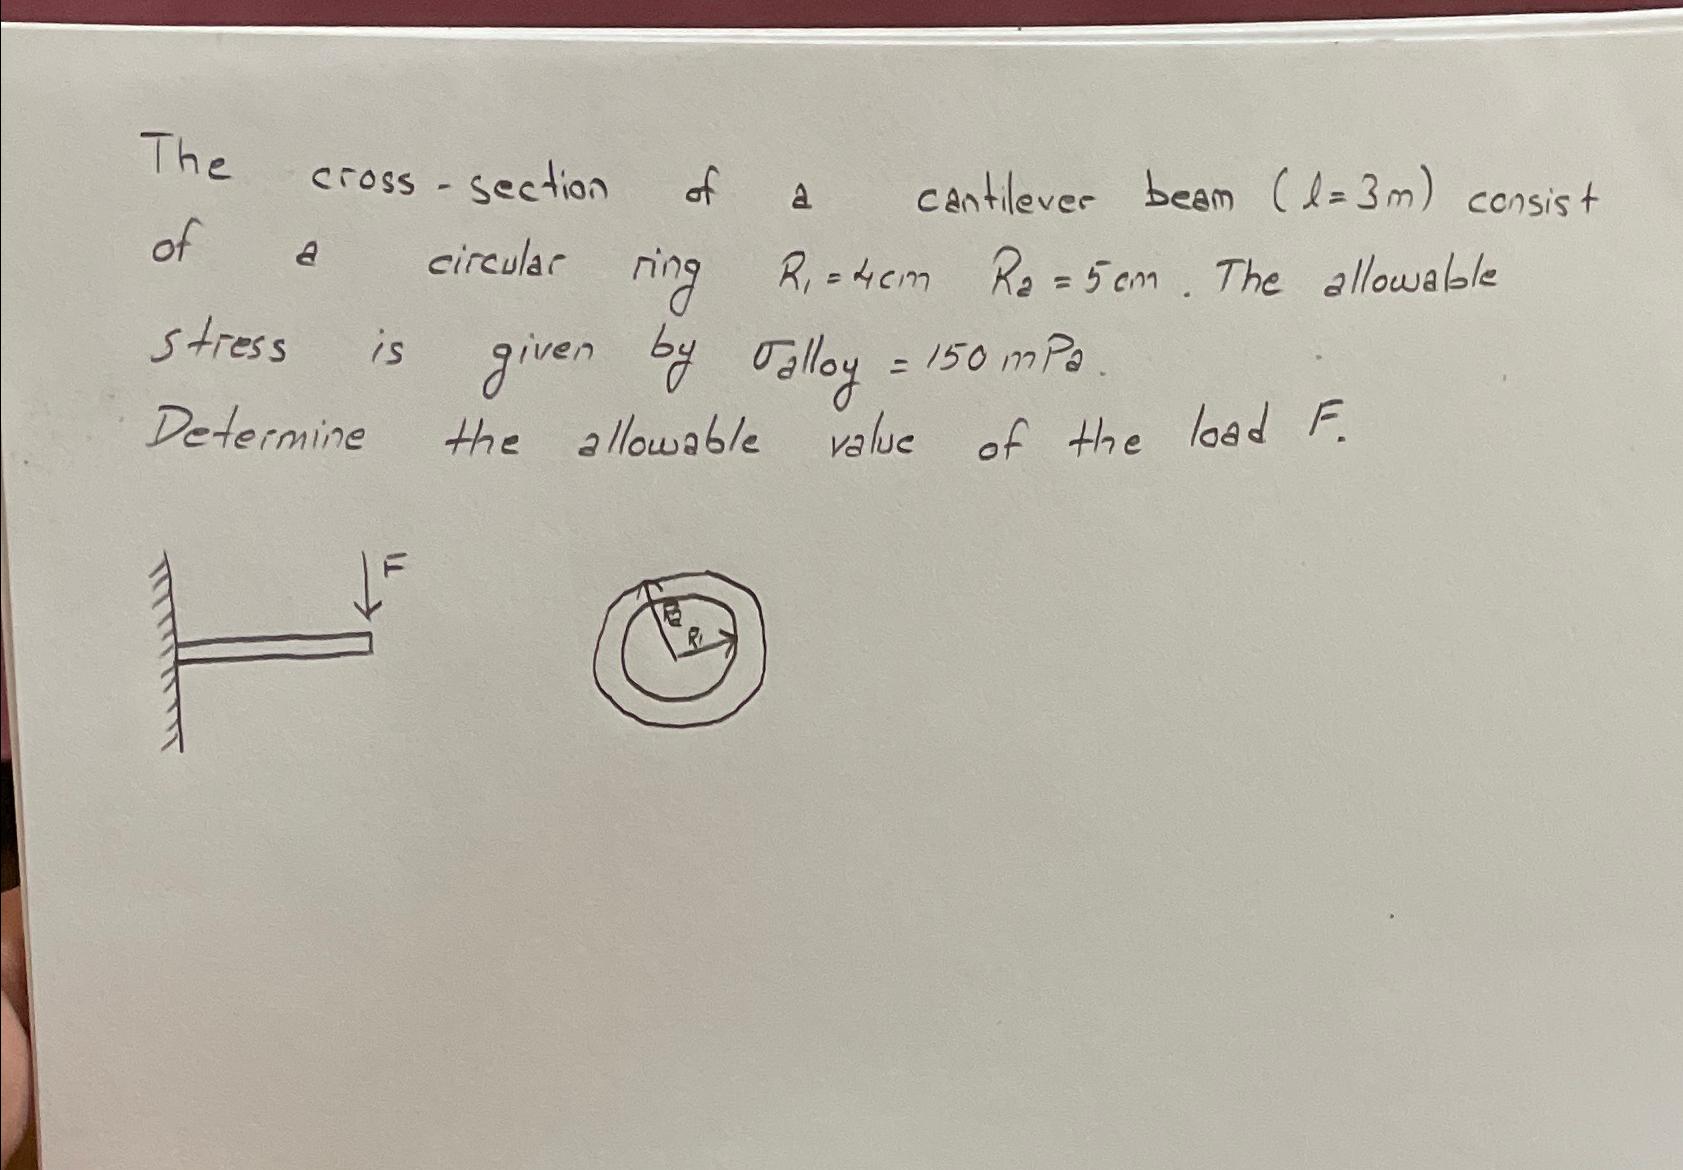 The cross-section of a cantilever beam (l=3m) consist
of a circular ring R₁=4cm R₂=5cm. The allowable
stress is given by σalloy = 150 mPa.
Determine the allowable value of the load F.
F
R₂
R₁